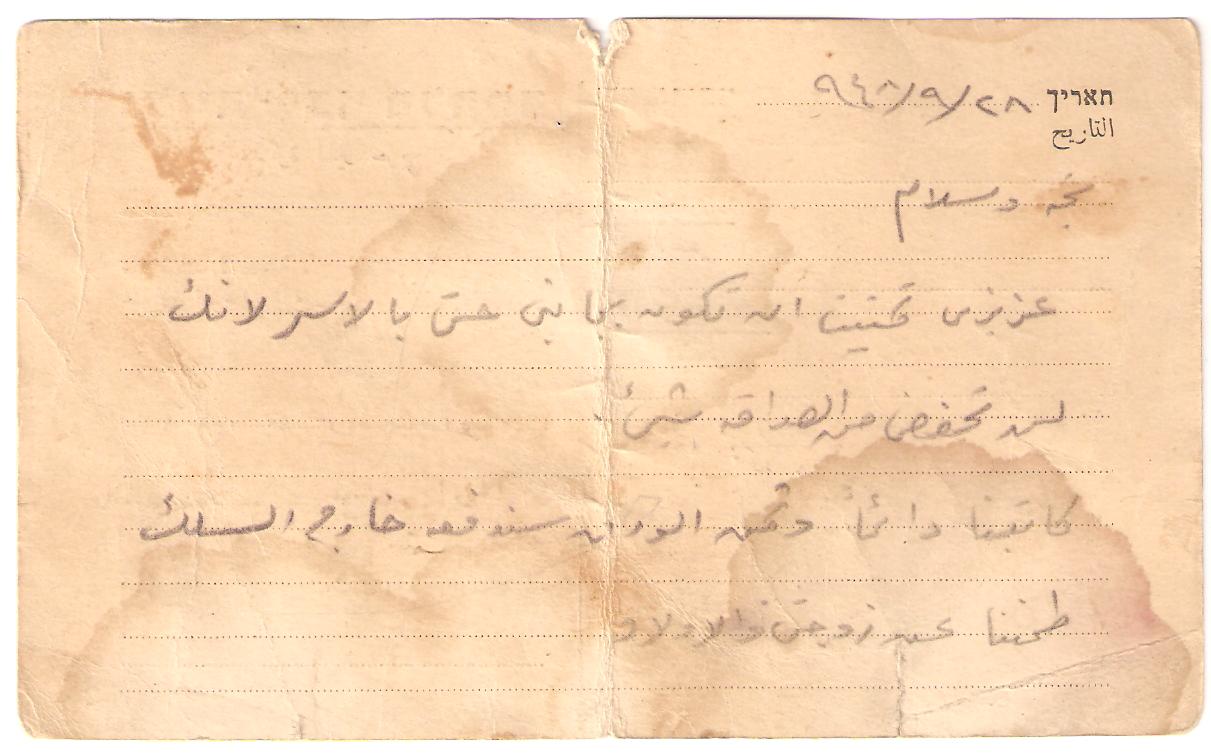 תאריך ٩٤٨/٩/٢٨
التاريخ
تحية وسلام
عزيزي تمنيت ان تكون بجانبي حتى بالاسر لانك
لن تخفض من الصداقة شيئ
كاتبنا دائماً وثمن الورق سندفعه خارج السلك
طمننا عن زوجتي والاولاد